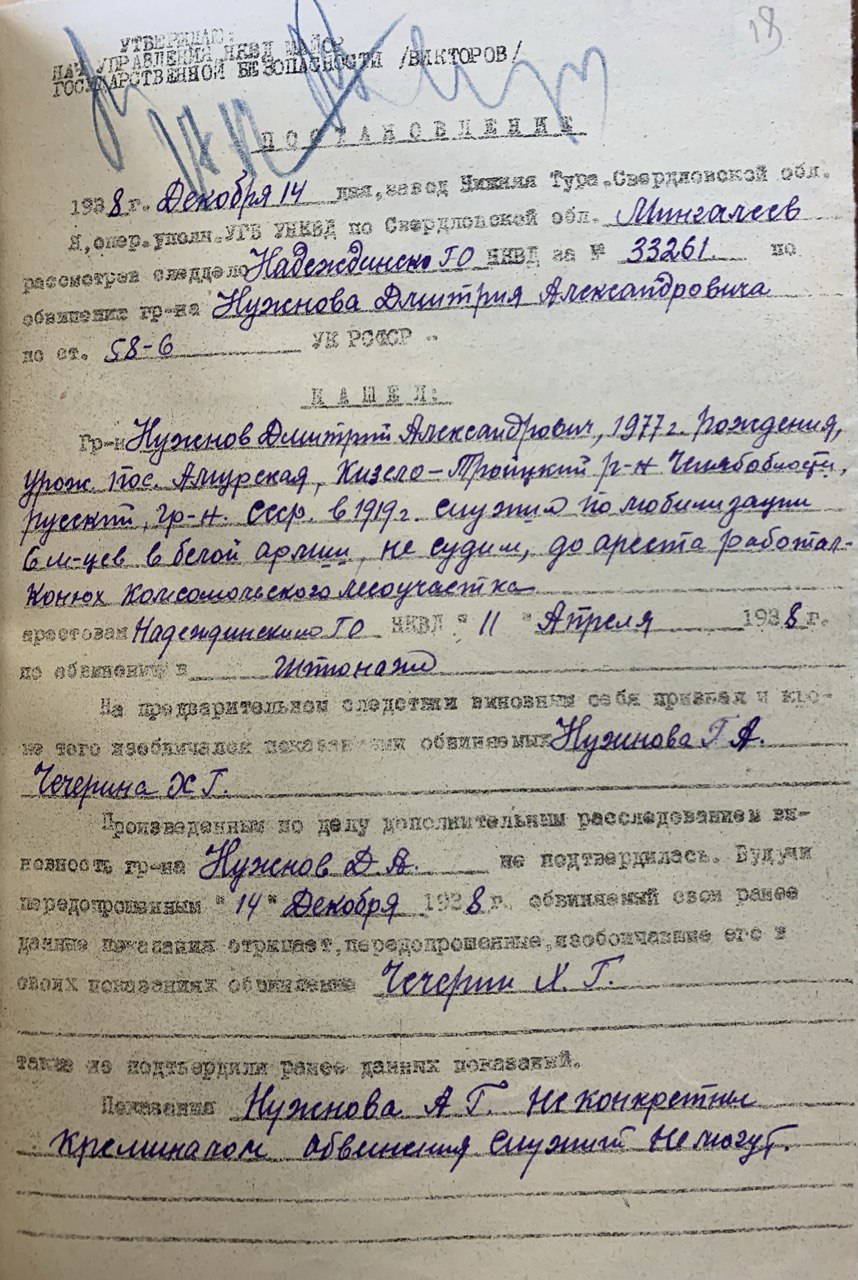 18
УТВЕРЖДАЮ:
НАЧ УПРАВЛЕНИЯ НКВД МАЙОР
ГОСУДАРСТВЕННОЙ БЕЗОПАСНОСТИ /ВИКТОРОВ/
ПОСТАНОВЛЕНИЕ
1938г. Декабря 14 дня, завод Нижняя Тура. Свердловской обл.
Я, опер. уполн. УГБ УНКВД по Свердловской обл. Мингалеев
рассмотрев следдело Надеждинско ГО НКВД за № 33261 по
обвинению гр-на Нужнова Дмитрия Александровича
по ст. 58-6 УК РСФСР -
НАШЕЛ:
Гр-н Нужнов Дмитрий Александрович, 1977 г. рождения,
урож. пос. Амурская, Кизело-Тройцкий р-н
русский, гр-н. СССР. в 1919 г. служил по мобилизации
6 м-цев в белой армии, не судим, до ареста работал-
Конюх Комсомольского лесоучастка
арестован Надеждинским ГО НКВД "11" Апреля 1938г.
по обвинению в шпионаже
На предварительном следствии виновным себя признал и кро-
ме того изобличался показаниями обвиняемых Нужнова Г А.
Чечерина Х Г.
Произведенным по делу дополнительным расследованием ви-
новность гр-на Нужнов Д А. не подтвердилась. Будучи
передопрошенным "14" Декабря 1938г. обвиняемый свои ранее
данные показания отрицает, передопрошенные, изобличавшие его в
своих показаниях обвиняемые Чечерин Х. Г.
также не подтвердили ранее данных показаний.
Показания Нужнова А Г. не конкретны
Креминалом обвинения служит не могут.